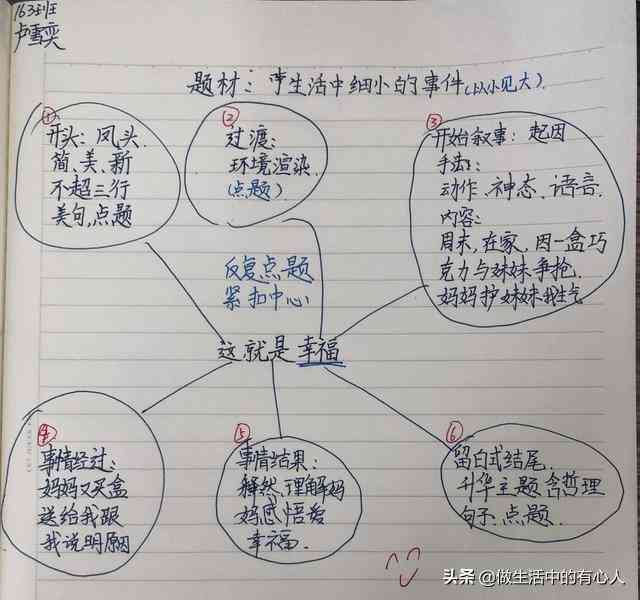 163班
卢雪奕
题材:生活中细小的事件(以小见大).
①
开头:凤头.
简、美、新
不超三行
美句,点题
②
过渡:
环境渲染
(点题)
③
开始叙事:起因
手法:
动作、神态、语言.
内容:
周末,在家,因一盒巧
克力与妹妹争抢,
妈妈护妹妹我生气
反复点题
紧扣中心
这就是幸福
④
事情经过:
妈妈又买盒
送给我跟
我说明原因
⑤
事情结果:
释然,理解妈
妈感悟爱
幸福.
⑥
留白式结尾.
升华主题含哲理
句子、点题.
头条@做生活中的有心人